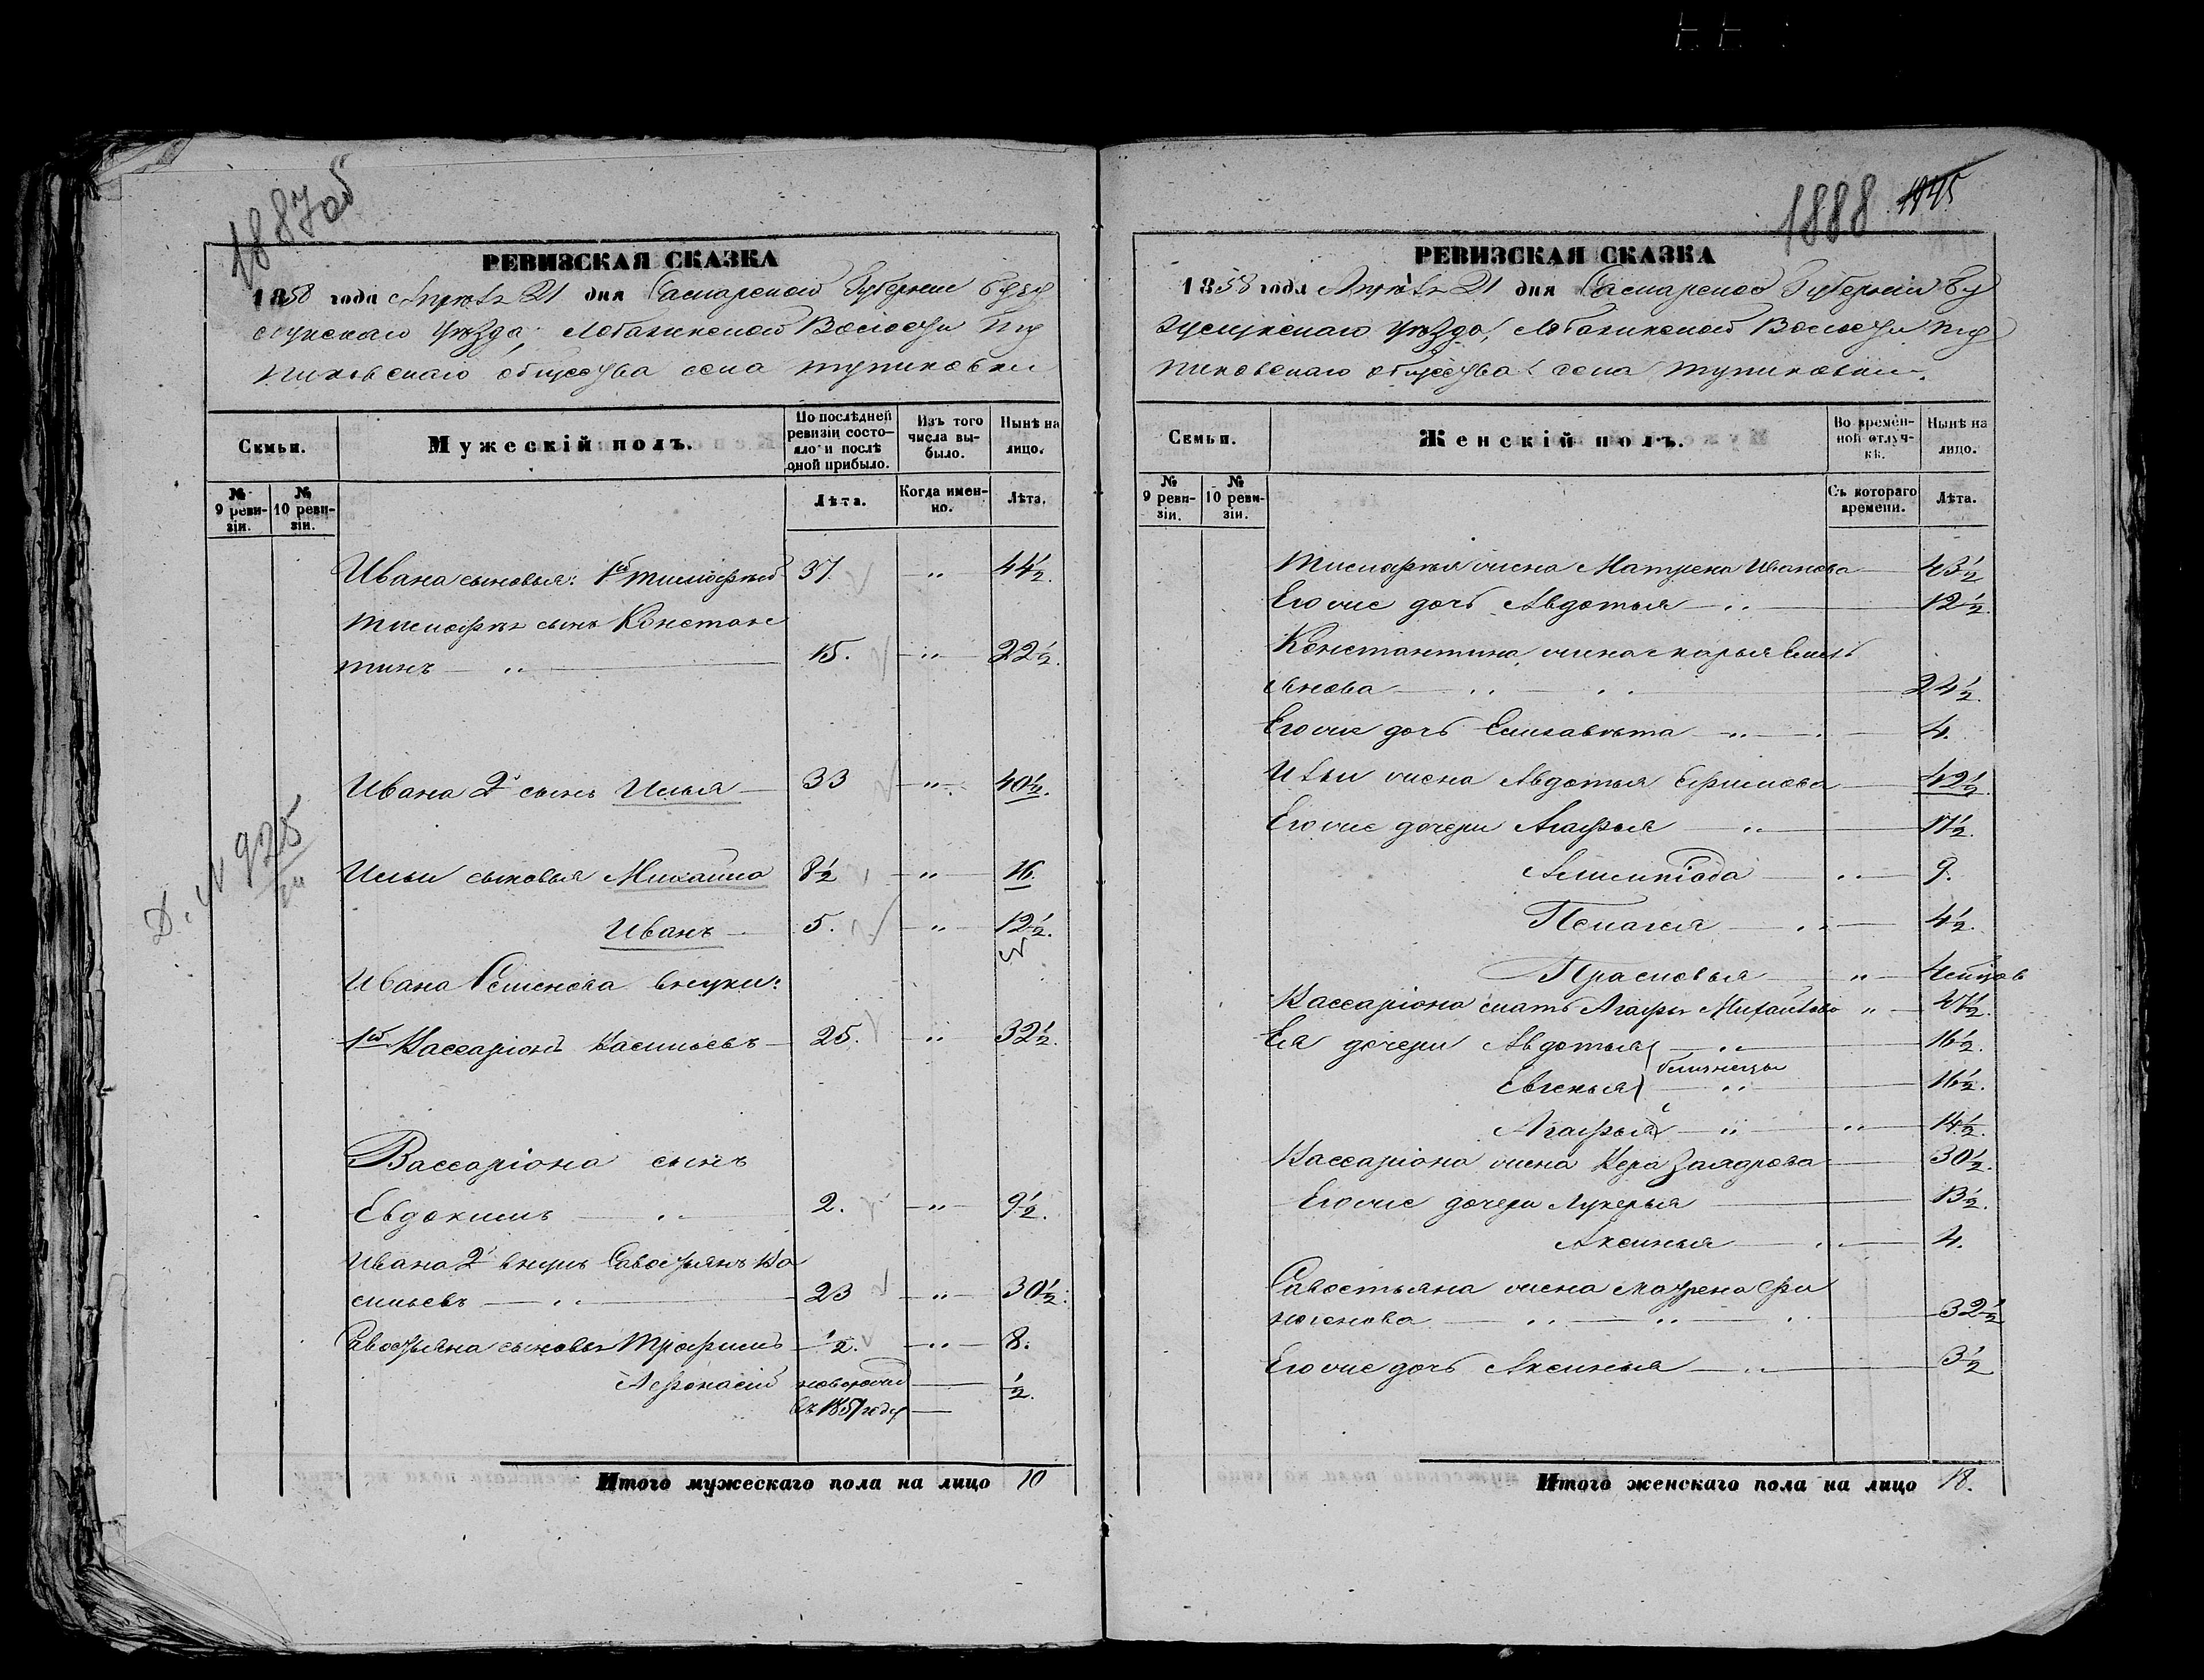 1887об
РЕВИЗСКАЯ СКАЗКА
1858 года Апрѣля 21 дня Самарской Губерніи Бузу
лукскаго уѣзда, Лобазинской Волости Ту
пиковскаго общества села Тупиковки
Семьи.
Мужескій полъ.
По послѣдней ревизіи состояло и послѣ оной прибыло.
Изъ того числа выбыло.
Нынѣ на лицо.
№ 9 ревизіи.
№ 10 ревизіи.
Лѣта.
Когда именно.
Лѣта.
Ивана сыновья: 1й Тимофѣй 37. " 44½.
Тимофѣя сынъ Констан
тинъ " 15. " 22½.
Ивана 2й сынъ Илья 33 " 40½.
Д. № 925
Ильи сыновья Михайла 8½ " 16.
Иванъ 5. " 12½.
Ивана Семенова внуки:
1й Вассаріонъ Васильевъ 25. " 32½.
Вассаріона сынъ
Евдокимъ " 2. " 9½.
Ивана 2й внукъ Савостьянъ Ва
сильевъ " 23 " 30½.
Савостьяна сыновья Трофимъ ½. " 8.
Афонасій новорожд ½.
въ 1857 году
Итого мужескаго пола на лицо 10
1888 1945
РЕВИЗСКАЯ СКАЗКА
1858 года Апрѣля 21 дня Самарской Губерніи Бу
зулукскаго уѣзда, Лобазинской Волости Ту
пиковскаго общества села Тупиковки.
Семьи.
Женскій полъ.
Во временной отлучкѣ.
Нынѣ на лицо.
№ 9 ревизіи.
№ 10 ревизіи.
Съ котораго времени.
Лѣта.
Тимофѣя жена Матрена Иванова 43½
Его же дочь Авдотья " 12½.
Константина жена Марья Емель
янова " " 24½.
Его же дочь Елисавѣта " 4.
Ильи жена Авдотья Ефимова 42½.
Его же дочери Агафья " 17½.
" 9.
Пелагея " 4½.
Прасковья "
Вассаріона мать Агафья Михайлова " 47½.
Ея дочери Авдотья " 16½.
близнецы
Евгенья " 16½.
Агафья " " 14½.
Вассаріона жена Вера 30½.
Его же дочери Лукерья 13½.
Аксинья " 4.
Савостьяна жена Матрена Фи
ногенова " " " 32½
Его же дочь Аксинья " 3½
Итого женскаго пола на лицо 18.